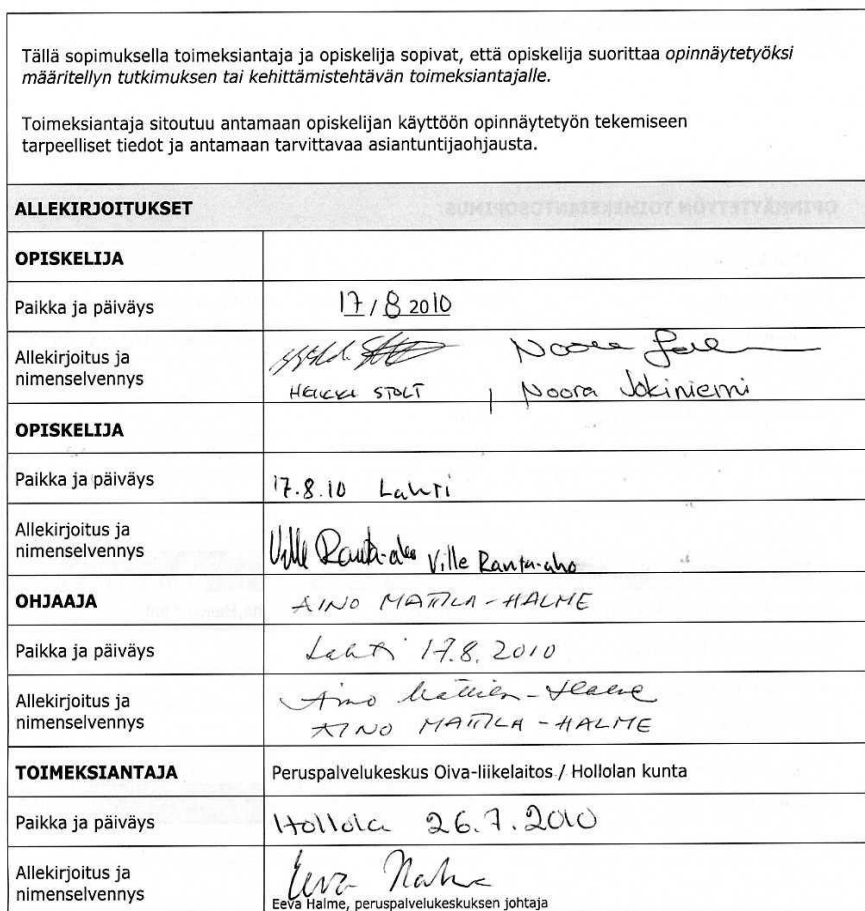 Tällä sopimuksella toimeksiantaja ja opiskelija sopivat, että opiskelija suorittaa opinnäytetyöksi
määritellyn tutkimuksen tai kehittämistehtävän toimeksiantajalle.
Toimeksiantaja sitoutuu antamaan opiskelijan käyttöön opinnäytetyön tekemiseen
tarpeelliset tiedot ja antamaan tarvittavaa asiantuntijaohjausta.
ALLEKIRJOITUKSET
OPINNÄYTETYÖN TOIMEKSIANTOSOPIMUS
OPISKELIJA
Paikka ja päiväys
17/8 2010
Allekirjoitus ja
nimenselvennys
Noora
HEIKKI STOLT
Noora Jokiniemi
OPISKELIJA
Paikka ja päiväys
17.8.10 Lahti
Allekirjoitus ja
nimenselvennys
Ville Ranta-aho Ville Ranta-aho
OHJAAJA
AINO MATTILA-HALME
Paikka ja päiväys
Lahti 17.8.2010
Allekirjoitus ja
nimenselvennys
Aino Mattila-Halme
AINO MATTILA-HALME
TOIMEKSIANTAJA
Peruspalvelukeskus Oiva-liikelaitos / Hollolan kunta
Paikka ja päiväys
Hollola 26.7.2010
Allekirjoitus ja
nimenselvennys
Eeva Halme
Eeva Halme, peruspalvelukeskuksen johtaja